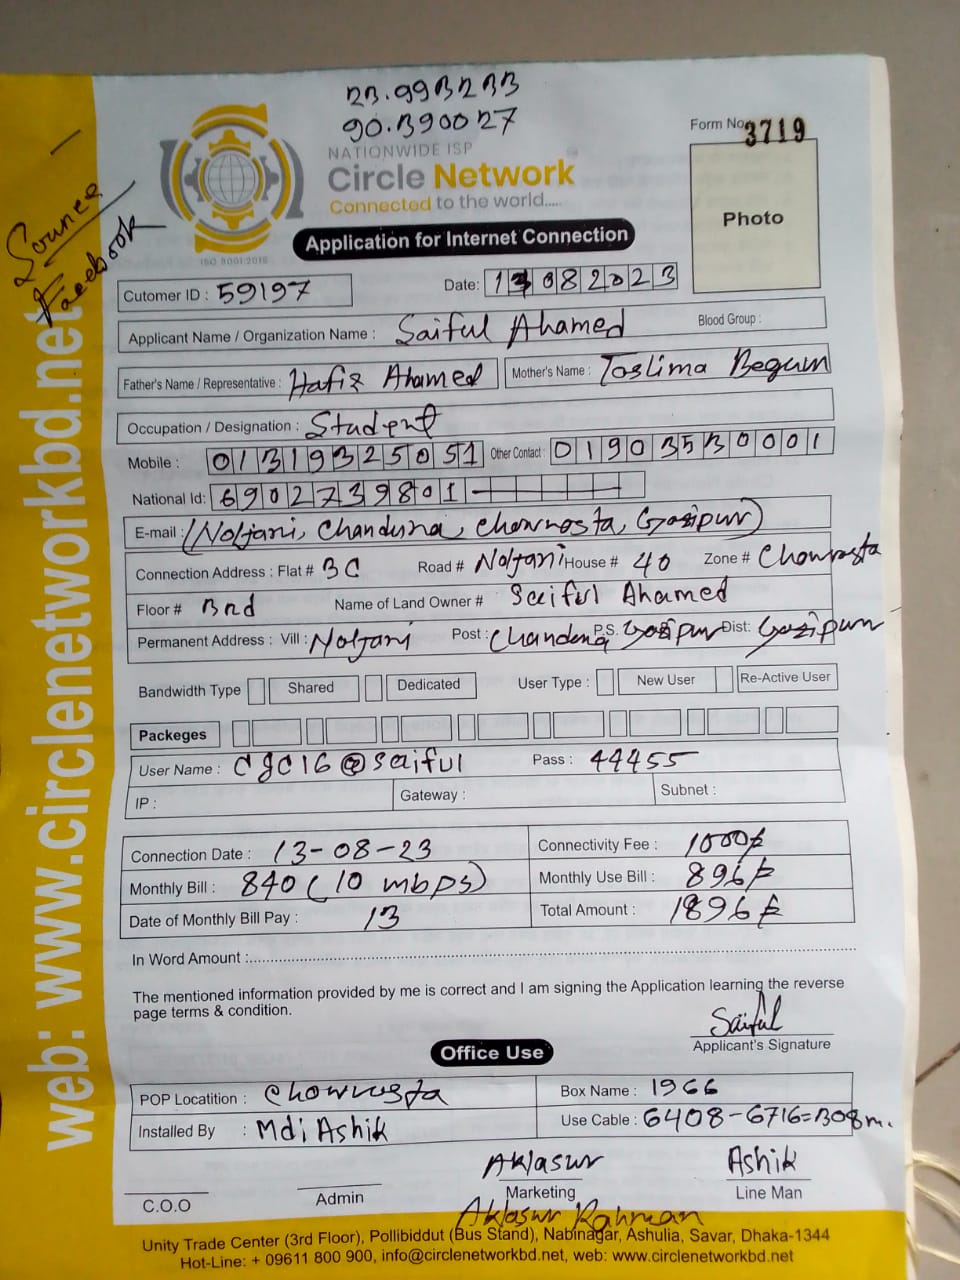 23.993233
90.390027
NATIONWIDE ISP
Circle Network
Connected to the world.....
ISO 9001:2015
Form No. 3719
Photo
Source
Facebook
web: www.circlenetworkbd.net
Application for Internet Connection
Cutomer ID : 59197 Date: 13082023
Applicant Name / Organization Name : Saiful Ahamed Blood Group :
Father's Name / Representative : Hafiz Ahamed Mother's Name : Taslima Begum
Occupation / Designation : Student
Mobile : 01319325051 Other Contact : 01903530001
National Id: 6902739801
E-mail : (Noljani, Chandona, Chowrasta, Gazipur)
Connection Address : Flat # 3C Road # Noljani House # 40 Zone # Chowrasta
Floor # 3rd Name of Land Owner # Saiful Ahamed
Permanent Address : Vill : Noljani Post : Chandona P.S. Gazipur Dist: Gazipur
Bandwidth Type Shared Dedicated User Type : New User Re-Active User
Packeges
User Name : cgc16@saiful Pass : 44455
IP : Gateway : Subnet :
Connection Date : 13-08-23 Connectivity Fee : 1000৳
Monthly Bill : 840 (10 mbps) Monthly Use Bill : 896৳
Date of Monthly Bill Pay : 13 Total Amount : 1896৳
In Word Amount :
The mentioned information provided by me is correct and I am signing the Application learning the reverse
page terms & condition.
Saiful
Applicant's Signature
Office Use
POP Locatition : Chowrasta Box Name : 1966
Installed By : Mdi Ashik Use Cable : 6408-6716=308m.
Aklasur Ashik
C.O.O Admin Marketing Line Man
Aklasur Rahman
Unity Trade Center (3rd Floor), Pollibiddut (Bus Stand), Nabinagar, Ashulia, Savar, Dhaka-1344
Hot-Line: + 09611 800 900, info@circlenetworkbd.net, web: www.circlenetworkbd.net